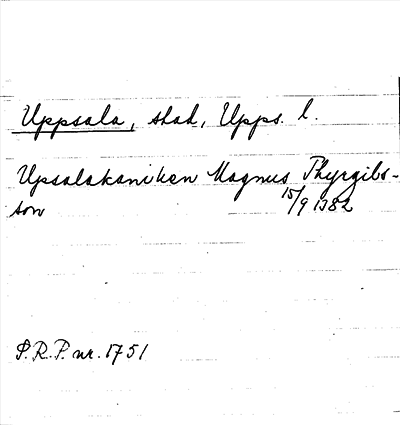 Uppsala, stad, Upps. l.
Upsalakaniken Magnus Thyrgils-
son 15/9 1382
S.R.P. nr. 1751